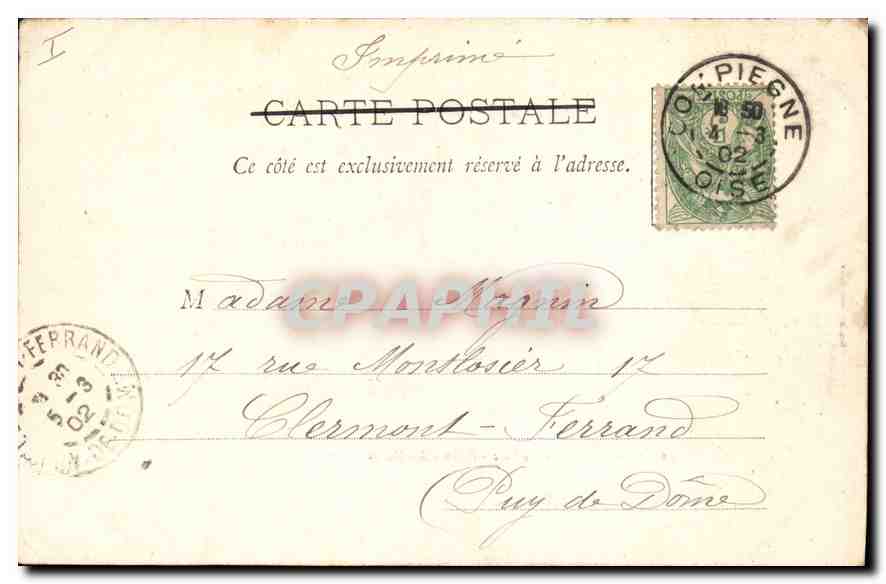 I
Imprimé
CARTE POSTALE
Ce côté est exclusivement réservé à l'adresse.
COMPIEGNE
18 50
4 - 3
02
OISE
CPAPHIL
Madame Magnin
17 rue Montlosier 17
Clermont-Ferrand
(Puy de Dôme
T-FERRAND
5 - 3
02
PUY-DE-DOME